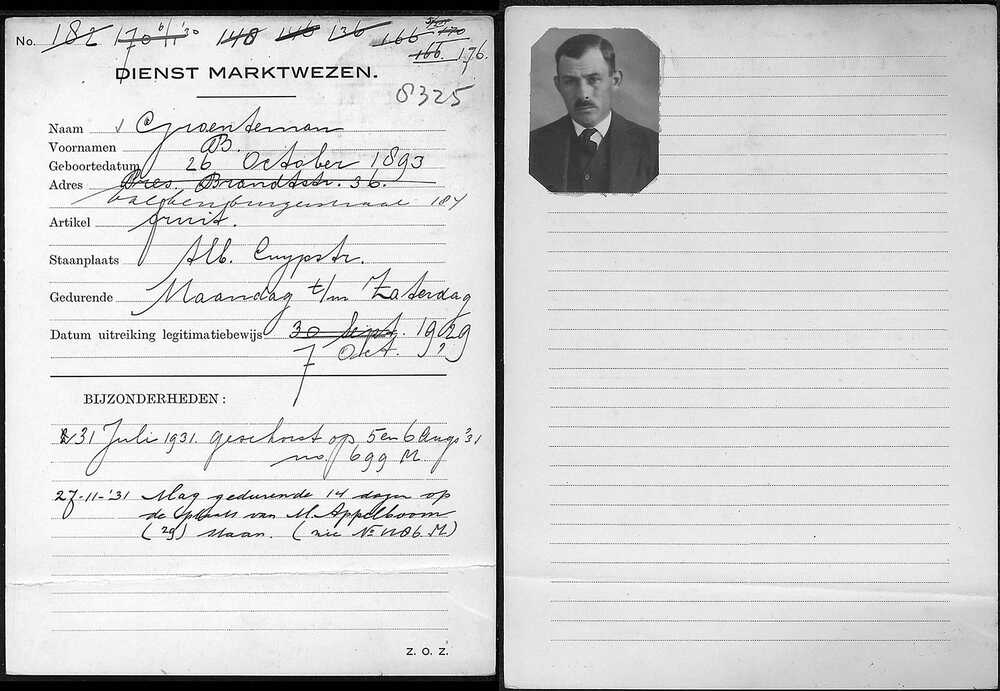 No. 182 170 6/11 30 148 146 136 166 170
166. 176.
DIENST MARKTWEZEN.
8325
Naam Groenteman
Voornamen B.
Geboortedatum 26 October 1893
Adres Pres. Brandtstr. 36.
Valkenburgerstraat 184
Artikel fruit.
Staanplaats Alb. Cuypstr.
Gedurende Maandag t/m Zaterdag
Datum uitreiking legitimatiebewijs 30 Sept. 1929
7 Oct. ?
BIJZONDERHEDEN:
31 Juli 1931. geschorst op 5 en 6 Aug. '31
no. 699 M.
27-11-'31 Mag gedurende 14 dagen op
de plaats van M. Appelboom
(29) staan. (zie No 1186. M)
Z. O. Z.